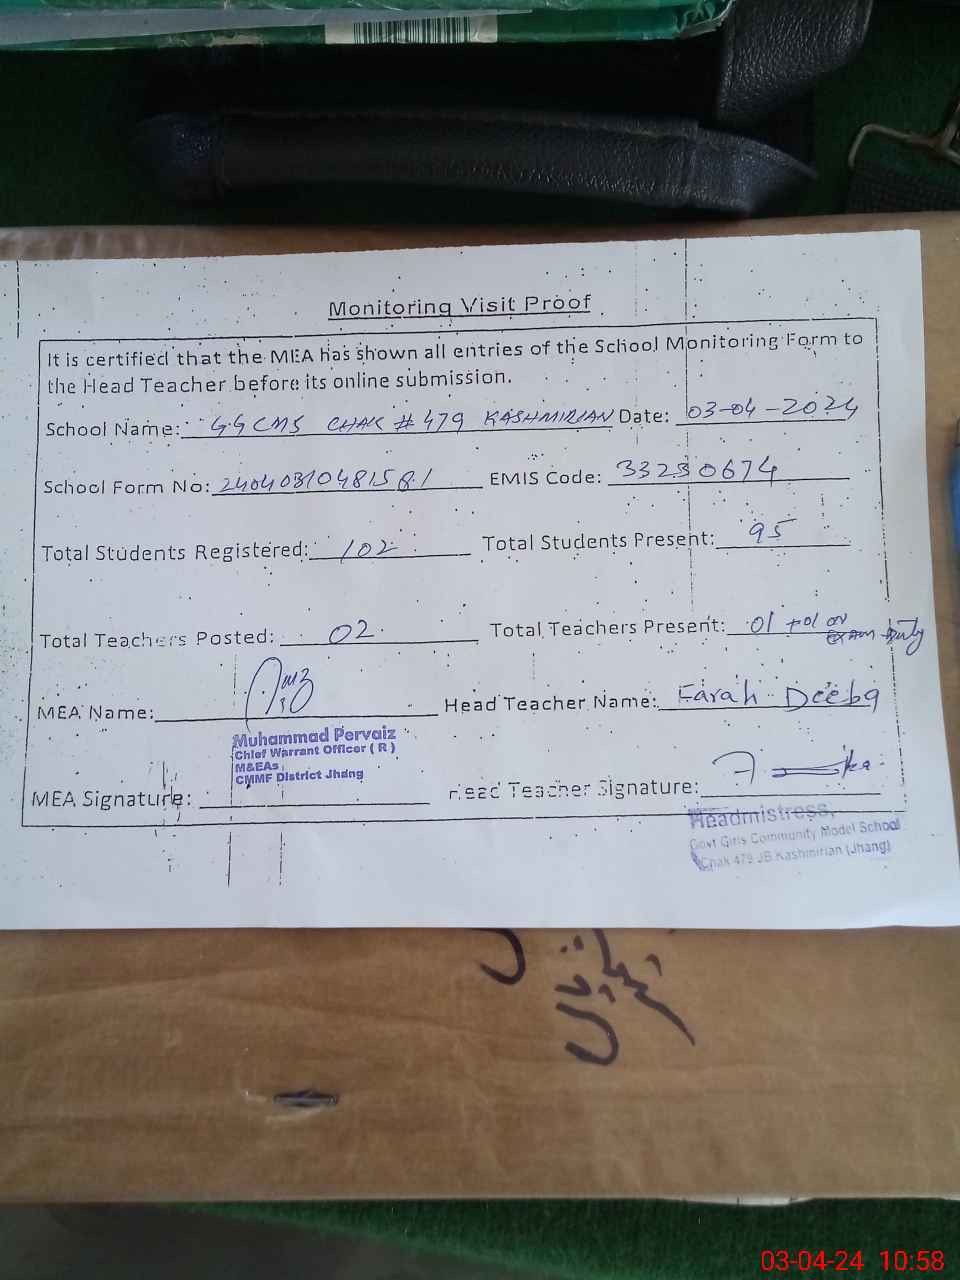 Monitoring Visit Proof
It is certified that the MEA has shown all entries of the School Monitoring Form to
the Head Teacher before its online submission.
School Name: GGCMS CHAK # 479 KASHMIRIAN Date: 03-04-2024
School Form No: EMIS Code: 33230674
Total Students Registered: 102 Total Students Present: 95
Total Teachers Posted: 02 Total Teachers Present: 01 + 01 on
Exam Duty
MEA Name: Head Teacher Name: Farah Deeba
Muhammad Pervaiz
Chief Warrant Officer ( R )
M&EAs
CMMF District Jhang
MEA Signature: Head Teacher Signature:
Headmistress,
Govt Girls Community Model School
Chak 479 JB Kashmirian (Jhang)
03-04-24 10:58